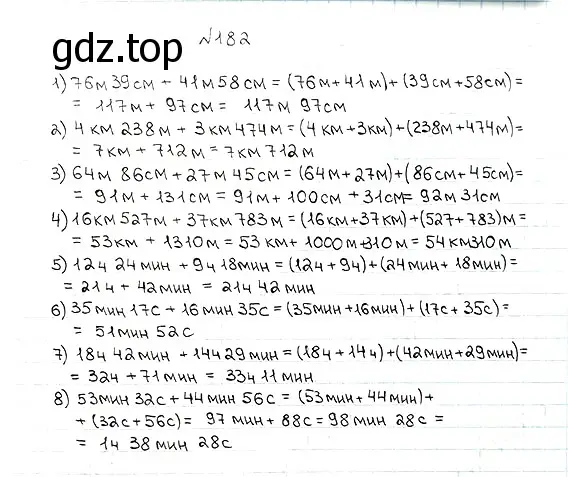 gdz.top
№182
1) 76м 39см + 41м 58см = (76м+41м)+(39см+58см)=
= 117м + 97см = 117м 97см
2) 4км 238м + 3км 474м = (4км+3км)+(238м+474м)=
= 7км + 712м = 7км 712м
3) 64м 86см + 27м 45см = (64м+27м)+(86см+45см)=
= 91м + 131см = 91м + 100см + 31см = 92м 31см
4) 16км 527м + 37км 783м = (16км+37км)+(527+783)м =
= 53км + 1310м = 53км + 1000м+310м = 54км310м
5) 12ч 24мин + 9ч 18мин = (12ч+9ч)+(24мин+18мин)=
= 21ч + 42мин = 21ч 42мин
6) 35мин 17с + 16мин 35с = (35мин+16мин)+(17с+35с)=
= 51мин 52с
7) 18ч 42мин + 14ч 29мин = (18ч+14ч)+(42мин+29мин)=
= 32ч + 71мин = 33ч 11мин
8) 53мин 32с + 44мин 56с = (53мин+44мин)+
+ (32с+56с) = 97мин + 88с = 98мин 28с =
= 1ч 38мин 28с